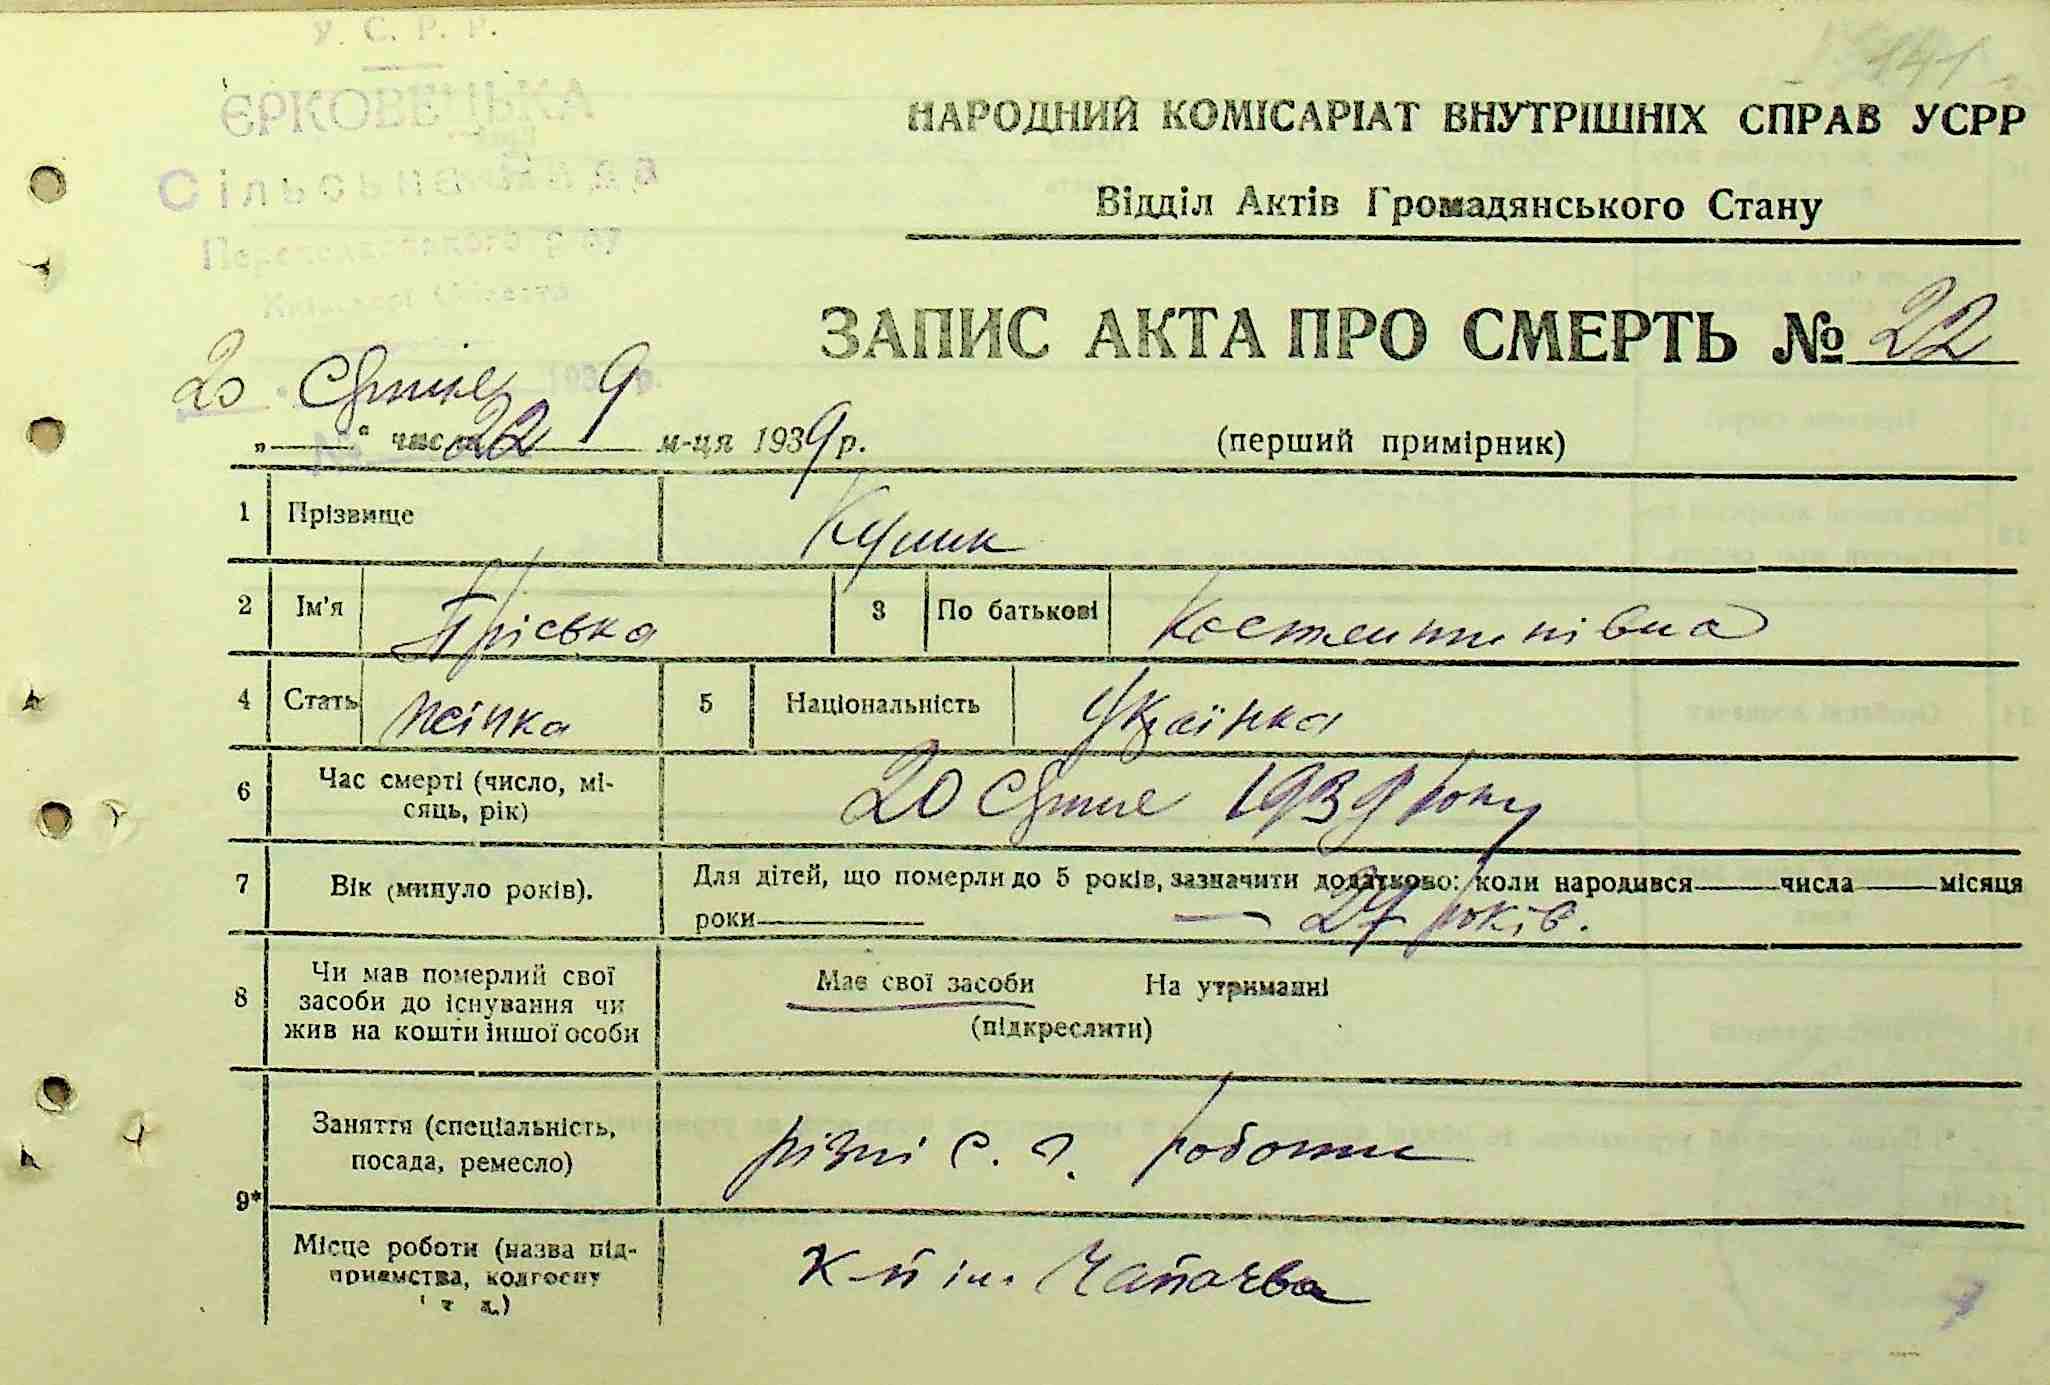 У. С. Р. Р.
ЄРКОВЕЦЬКА
Сільська Рада
Переяславського р-ну
Київської Області
141
НАРОДНИЙ КОМІСАРІАТ ВНУТРІШНІХ СПРАВ УСРР
Відділ Актів Громадянського Стану
ЗАПИС АКТА ПРО СМЕРТЬ № 22
20 9 193 р.
„ “ числа 22 м-ця 1939 р. (перший примірник)
1 Прізвище Кулик
2 Ім'я Пріська 3 По батькові Костентинівна
4 Стать жінка 5 Національність Українка
6 Час смерті (число, мі-
сяць, рік) 20 1939 року
7 Вік (минуло років). Для дітей, що померли до 5 років, зазначити додатково: коли народився числа місяця
роки — 27 років.
8 Чи мав померлий свої
засоби до існування чи
жив на кошти іншої особи
Має свої засоби На утриманні
(підкреслити)
9* Заняття (спеціальність,
посада, ремесло) різні с. г. роботи
Місце роботи (назва під-
приємства, колгоспу
і т. д.) к-п ім. Чапаєва